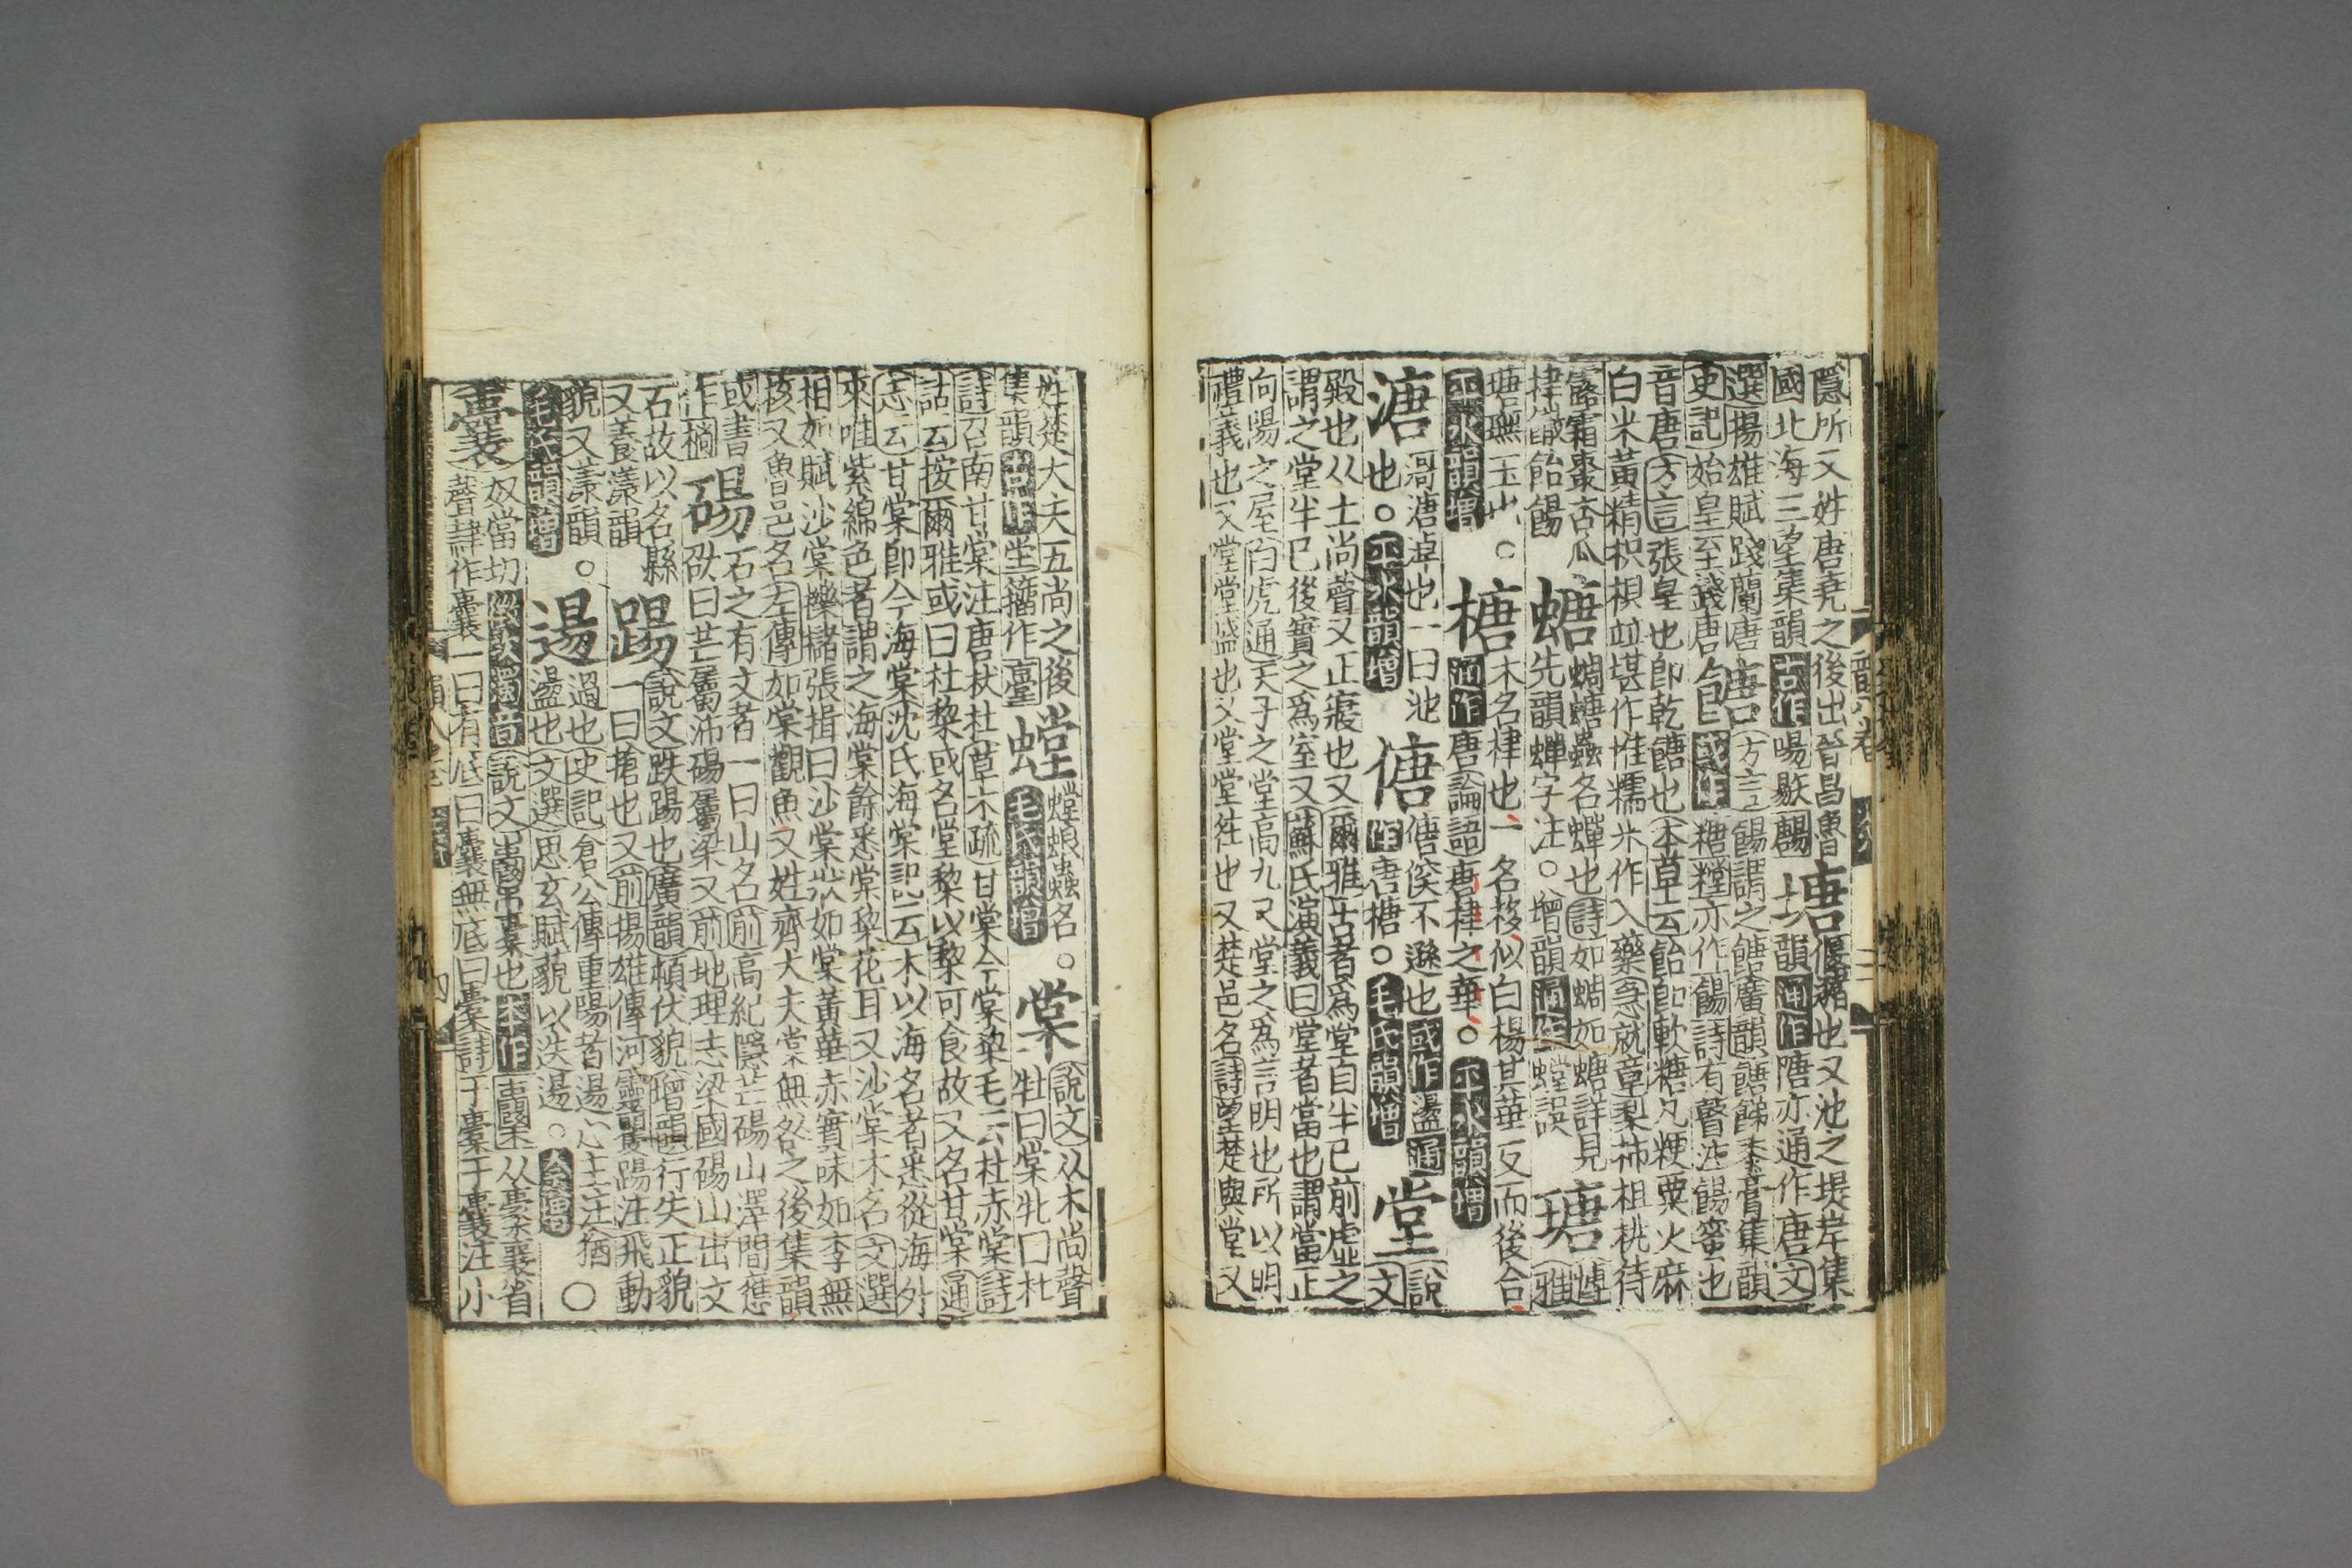 隱所又姓唐堯之後出晉昌魯
國北海三望集韻古作啺䣃
塘
偃豬也又池之堤岸集
韻通作隚亦通作唐文
選揚雄賦踐蘭唐
史記始皇至錢唐
餹
方言餳謂之餹廣韻餹餳黍膏集韻
或作糖糛亦作餳詩有瞽注餳蜜也
音唐方言張皇也即乾餹也本草云飴即軟糖凡粳粟火麻
白米黃精枳椇並堪作惟糯米作入藥急就章梨柿柤桃待
露霜棗杏瓜
棣饊飴餳
螗
蜩螗蟲名蟬也詩如蜩如螗詳見
先韻蟬字注○增韻通作螳誤
瑭
雅
瑭珷玉也○
平水韻增
榶
木名棣也一名栘似白楊其華反而後合
通作唐論語唐棣之華○平水韻增
溏
滈溏淖也一曰池
也○平水韻增
傏
傏俟不遜也或作盪通
作唐榶○毛氏韻增
堂
說
文
殿也从土尚聲又正寢也又爾雅古者爲堂自半已前虛之
謂之堂半已後實之爲室又蘇氏演義曰堂者當也謂當正
向陽之屋白虎通天子之堂高九尺堂之爲言明也所以明
禮義也又堂堂盛也又堂堂往也又楚邑名詩望楚與堂又
姓楚大夫五尚之後
集韻古作坣籀作臺
螳
螳蜋蟲名○
毛氏韻增
棠
說文从木尚聲
牡曰棠牝曰杜
詩召南甘棠注唐杕杜草木疏甘棠今棠棃毛云杜赤棠詩
詁云按爾雅或曰杜棃或名堂棃以棃可食故又名甘棠通
志云甘棠卽今海棠沈氏海棠記云木以海名者悉從海外
來唯紫綿色者謂之海棠餘悉棠棃花耳又沙棠木名文選
相如賦沙棠櫟櫧張揖曰沙棠狀如棠黃華赤實味如李無
核又魯邑名左傳如棠觀魚又姓齊大夫棠無咎之後集韻
或書
作樘
碭
石之有文者一曰山名前高紀隱芒碭山澤間應
劭曰芒屬沛碭屬梁又前地理志梁國碭山出文
石故以名縣
又養漾韻
踼
說文跌踼也廣韻頓伏貌增韻行失正貌
一曰搶也又前揚雄傳河靈矍踼注飛動
貌又漾韻○
毛氏韻增
逿
過也史記倉公傳重陽者逿心主注猶
盪也文選思玄賦藐以迭逿○
○
囊
奴當切次濁音說文从㯻襄省
聲
一曰有底曰囊無底曰橐詩于橐于囊注小